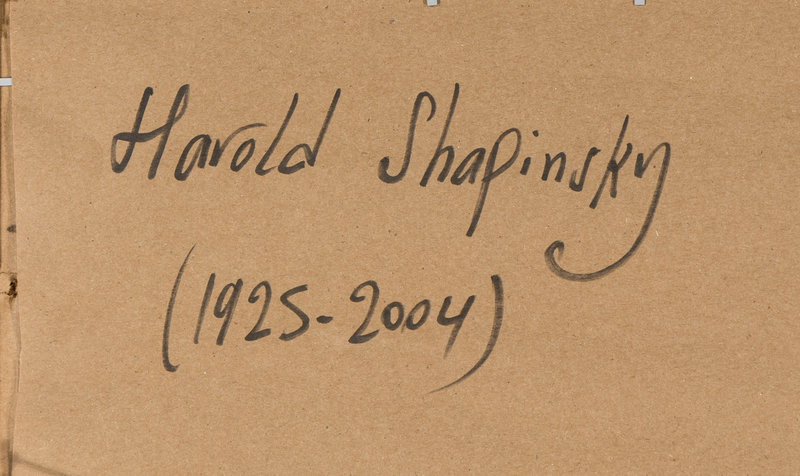 Harold Shapinsky
(1925-2004)